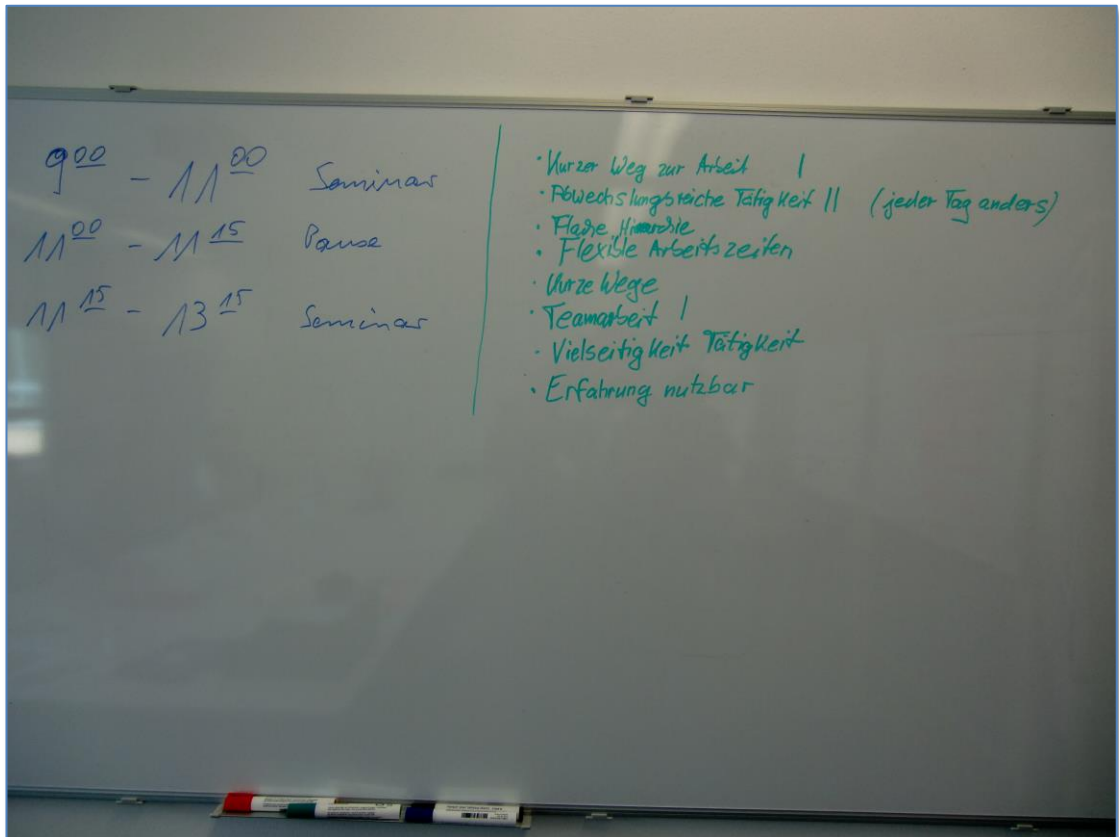 9 00 - 11 00 Seminar
11 00 - 11 15 Pause
11 15 - 13 15 Seminar
· Kurzer Weg zur Arbeit I
· Abwechslungsreiche Tätigkeit II (jeder Tag anders)
· Flache Hierarchie
· Flexible Arbeitszeiten
· Kurze Wege
· Teamarbeit I
· Vielseitigkeit Tätigkeit
· Erfahrung nutzbar